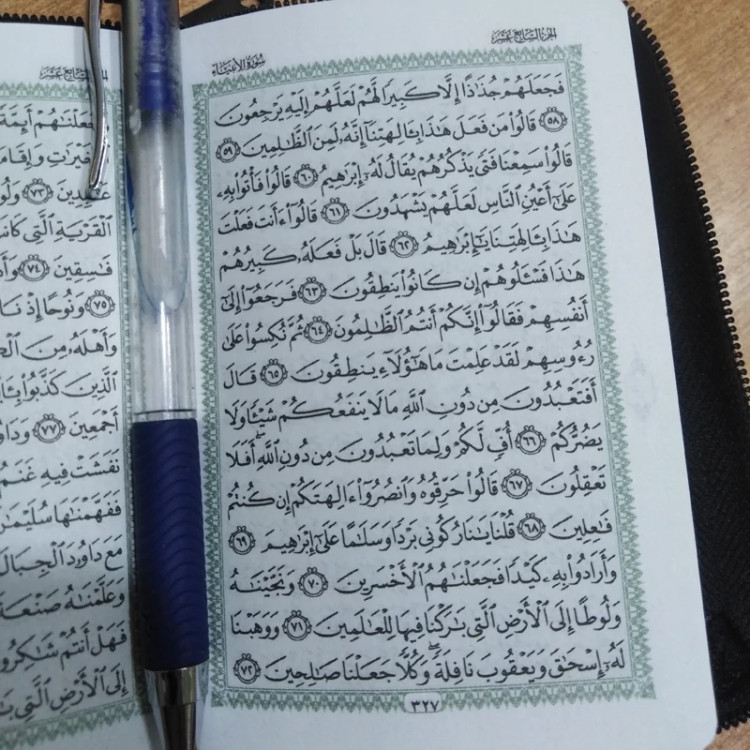 الجزء السابع عشر
سورة الأنبياء
فَجَعَلَهُمْ جُذَٰذًا إِلَّا كَبِيرًا لَّهُمْ لَعَلَّهُمْ إِلَيْهِ يَرْجِعُونَ
٥٨ قَالُوا۟ مَن فَعَلَ هَٰذَا بِـَٔالِهَتِنَآ إِنَّهُۥ لَمِنَ ٱلظَّٰلِمِينَ ٥٩
قَالُوا۟ سَمِعْنَا فَتًى يَذْكُرُهُمْ يُقَالُ لَهُۥٓ إِبْرَٰهِيمُ ٦٠ قَالُوا۟ فَأْتُوا۟ بِهِۦ
عَلَىٰٓ أَعْيُنِ ٱلنَّاسِ لَعَلَّهُمْ يَشْهَدُونَ ٦١ قَالُوٓا۟ ءَأَنتَ فَعَلْتَ
هَٰذَا بِـَٔالِهَتِنَا يَٰٓإِبْرَٰهِيمُ ٦٢ قَالَ بَلْ فَعَلَهُۥ كَبِيرُهُمْ
هَٰذَا فَسْـَٔلُوهُمْ إِن كَانُوا۟ يَنطِقُونَ ٦٣ فَرَجَعُوٓا۟ إِلَىٰٓ
أَنفُسِهِمْ فَقَالُوٓا۟ إِنَّكُمْ أَنتُمُ ٱلظَّٰلِمُونَ ٦٤ ثُمَّ نُكِسُوا۟ عَلَىٰ
رُءُوسِهِمْ لَقَدْ عَلِمْتَ مَا هَٰٓؤُلَآءِ يَنطِقُونَ ٦٥ قَالَ
أَفَتَعْبُدُونَ مِن دُونِ ٱللَّهِ مَا لَا يَنفَعُكُمْ شَيْـًٔا وَلَا
يَضُرُّكُمْ ٦٦ أُفٍّ لَّكُمْ وَلِمَا تَعْبُدُونَ مِن دُونِ ٱللَّهِ ۖ أَفَلَا
تَعْقِلُونَ ٦٧ قَالُوا۟ حَرِّقُوهُ وَٱنصُرُوٓا۟ ءَالِهَتَكُمْ إِن كُنتُمْ
فَٰعِلِينَ ٦٨ قُلْنَا يَٰنَارُ كُونِى بَرْدًا وَسَلَٰمًا عَلَىٰٓ إِبْرَٰهِيمَ ٦٩
وَأَرَادُوا۟ بِهِۦ كَيْدًا فَجَعَلْنَٰهُمُ ٱلْأَخْسَرِينَ ٧٠ وَنَجَّيْنَٰهُ
وَلُوطًا إِلَى ٱلْأَرْضِ ٱلَّتِى بَٰرَكْنَا فِيهَا لِلْعَٰلَمِينَ ٧١ وَوَهَبْنَا
لَهُۥٓ إِسْحَٰقَ وَيَعْقُوبَ نَافِلَةً ۖ وَكُلًّا جَعَلْنَا صَٰلِحِينَ ٧٢
٣٢٧
أَئِمَّةً
عَٰبِدِينَ ٧٣
ٱلْقَرْيَةِ ٱلَّتِى
فَٰسِقِينَ ٧٤
٧٥ وَنُوحًا إِذْ
وَأَهْلَهُۥ مِنَ
ٱلَّذِينَ كَذَّبُوا۟
أَجْمَعِينَ ٧٧
نَفَشَتْ فِيهِ غَنَمُ
فَفَهَّمْنَٰهَا
مَعَ دَاوُۥدَ ٱلْجِبَالَ
وَعَلَّمْنَٰهُ صَنْعَةَ
فَهَلْ أَنتُمْ
إِلَى ٱلْأَرْضِ ٱلَّتِى